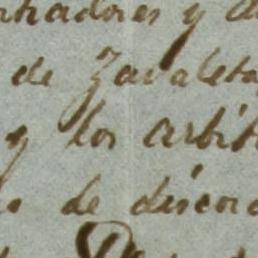 tradores y a
de Zavaleta
y los arbit
de discord